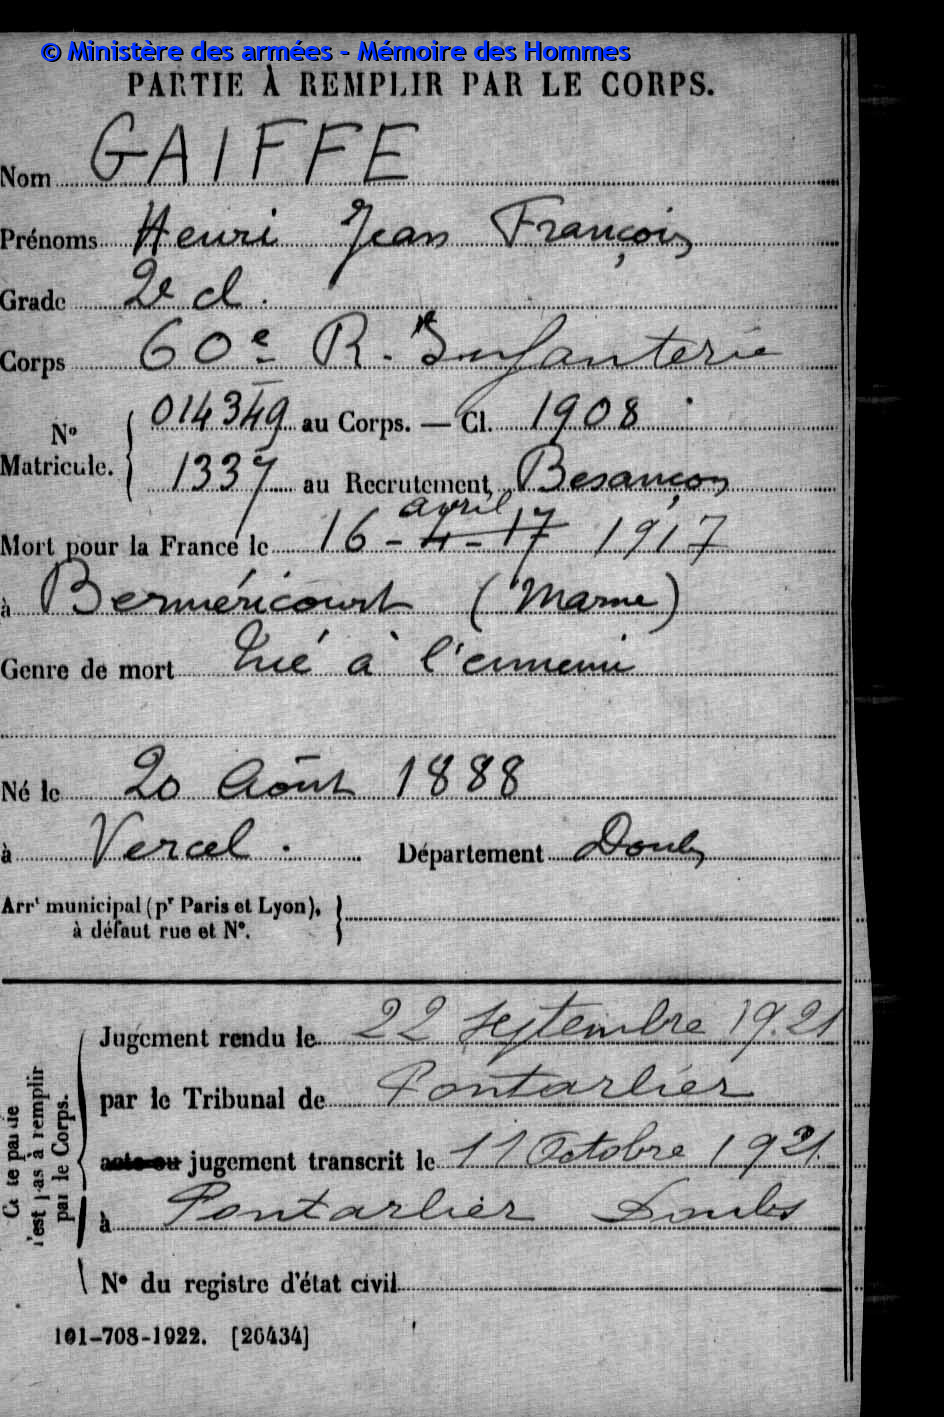 © Ministère des armées - Mémoire des Hommes
PARTIE À REMPLIR PAR LE CORPS.
Nom GAIFFE
Prénoms Henri Jean François
Grade 2e cl.
Corps 60e R. Infanterie
N° Matricule. 014349 au Corps. — Cl. 1908
1337 au Recrutement Besançon
avril
Mort pour la France le 16 - 4 - 17 1917
à Berméricourt (Marne)
Genre de mort Tué à l'ennemi
Né le 20 Août 1888
à Vercel. Département Doubs
Arrt municipal (pr Paris et Lyon),
à défaut rue et N°.
Jugement rendu le 22 Septembre 1921
par le Tribunal de Pontarlier
acte ou jugement transcrit le 11 Octobre 1921.
à Pontarlier Doubs
N° du registre d'état civil
Ce te partie
n'est pas à remplir
par le Corps.
101-708-1922. [26434]